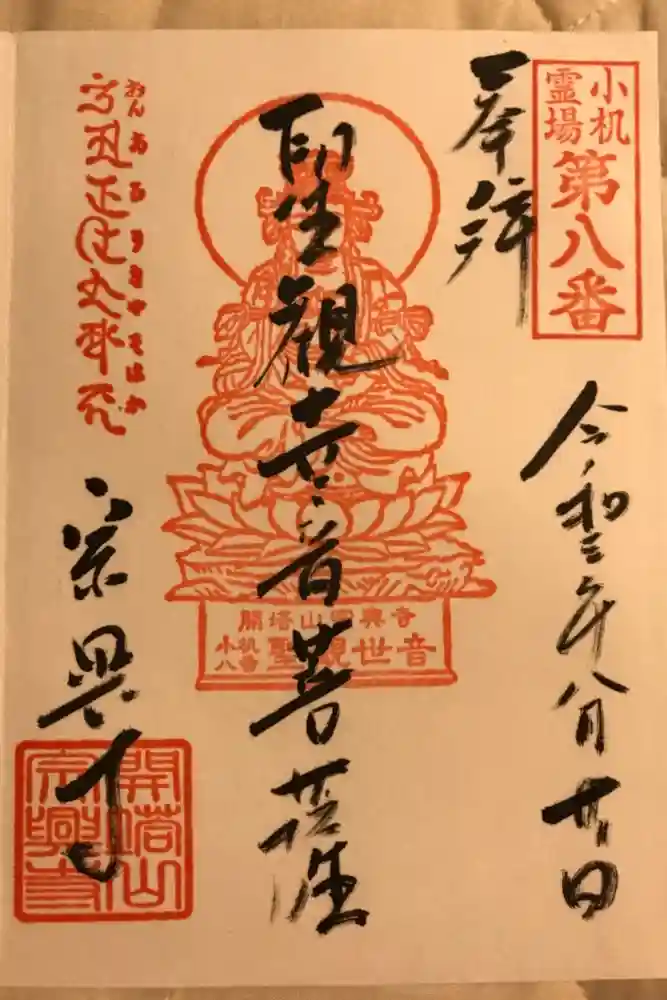 小机
霊場
第八番
奉拝
令和三年八月廿日
聖觀世音菩薩
開塔山宗興寺
小机
八番
聖観世音
おんあろりきやそはか
宗興寺
開塔山
宗興寺